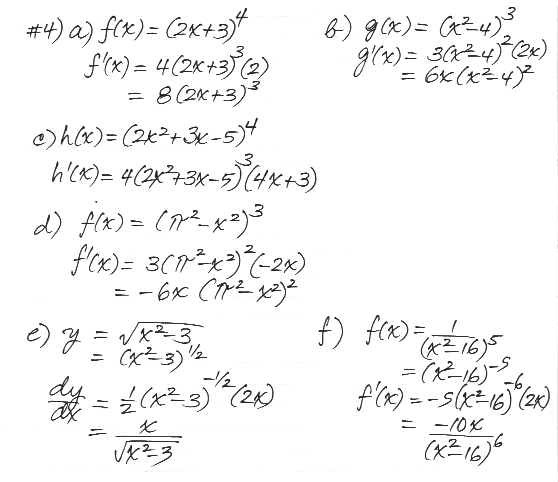 #4) a) f(x) = (2x+3)⁴
f'(x) = 4(2x+3)³(2)
= 8(2x+3)³
b) g(x) = (x²-4)³
g'(x) = 3(x²-4)²(2x)
= 6x(x²-4)²
c) h(x) = (2x²+3x-5)⁴
h'(x) = 4(2x²+3x-5)³(4x+3)
d) f(x) = (π²-x²)³
f'(x) = 3(π²-x²)²(-2x)
= -6x (π²-x²)²
e) y = √(x²-3)
= (x²-3)^1/2
dy/dx = 1/2 (x²-3)^-1/2 (2x)
= x/√(x²-3)
f) f(x) = 1/(x²-16)⁵
= (x²-16)⁻⁵
f'(x) = -5(x²-16)⁻⁶(2x)
= -10x/(x²-16)⁶